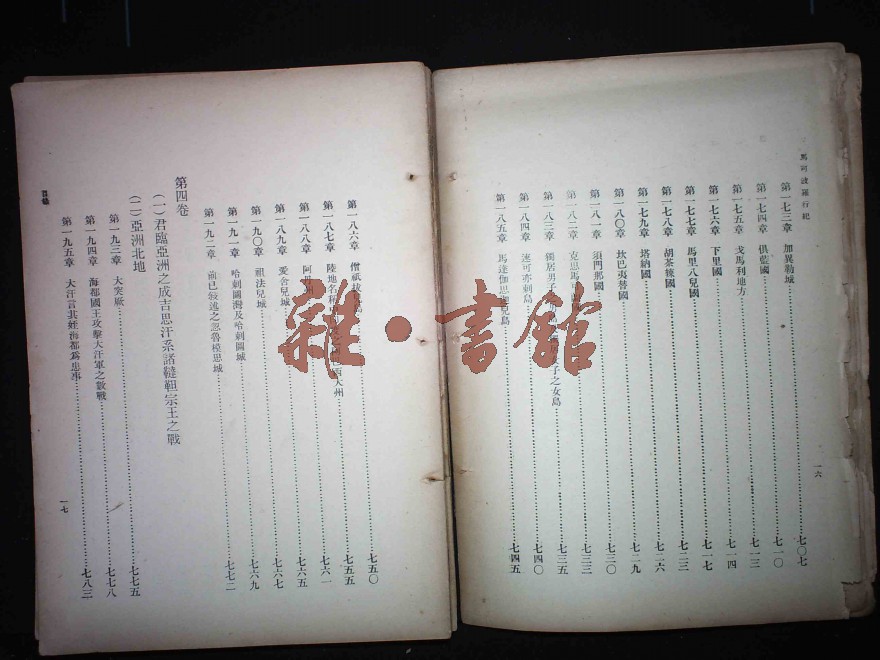 馬可波羅行紀
一六
第一七三章 加異勒城……七〇七
第一七四章 俱藍國……七一〇
第一七五章 戈馬利地方……七一三
第一七六章 下里國……七一四
第一七七章 馬里八兒國……七一七
第一七八章 胡茶辣國……七二三
第一七九章 塔納國……七二六
第一八〇章 坎巴夷替國……七二九
第一八一章 須門那國……七三〇
第一八二章 克思馬……七三三
第一八三章 獨居男子……子之女島……七三五
第一八四章 速可亦剌島……七四〇
第一八五章 馬達伽思迦兒島……七四五
第一八六章 僧祇拔……七五〇
第一八七章 陸地名稱……大州……七五五
第一八八章 阿……七六一
第一八九章 愛舍兒城……七六五
第一九〇章 祖法兒城……七六七
第一九一章 哈剌圖灣及哈剌圖城……七六九
第一九二章 前已敍述之忽魯模思城……七七二
第四卷
(一)君臨亞洲之成吉思汗系諸韃靼宗王之戰
(二)亞洲北地
第一九三章 大突厥……七七五
第一九四章 海都國王攻擊大汗軍之數戰……七七八
第一九五章 大汗言其姪海都爲患事……七八三
目錄
一七
雜·書館